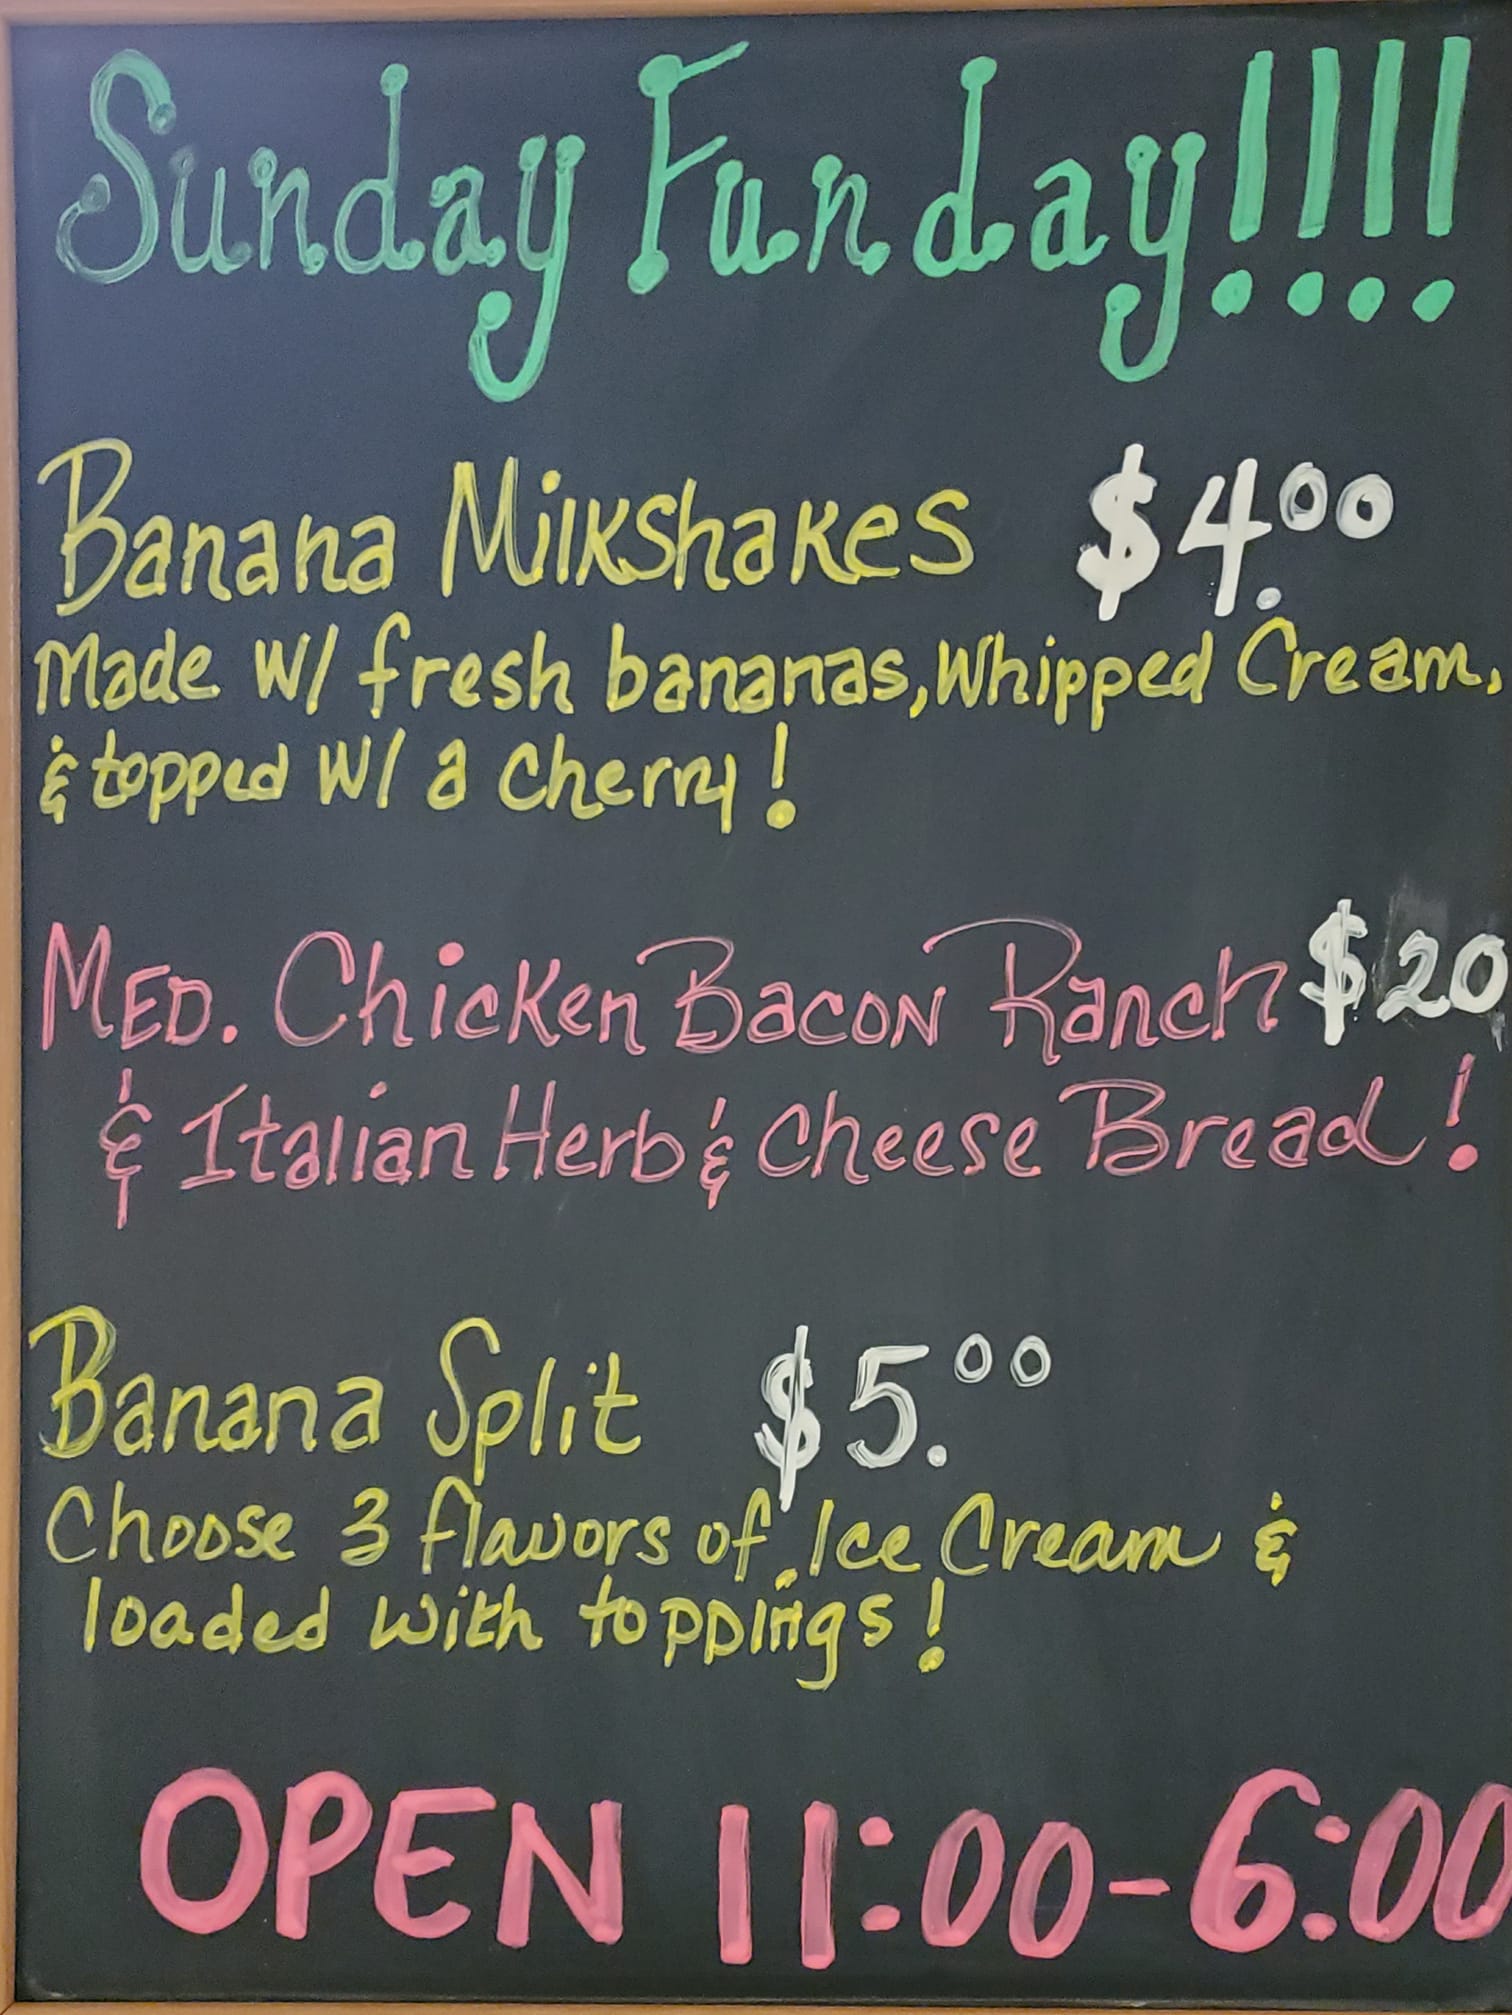 Sunday Funday!!!!
Banana Milkshakes $4.00
Made w/ fresh bananas, Whipped Cream,
& topped w/ a Cherry!
MED. Chicken Bacon Ranch $20
& Italian Herb & Cheese Bread!
Banana Split $5.00
Choose 3 flavors of Ice Cream &
loaded with toppings!
OPEN 11:00-6:00